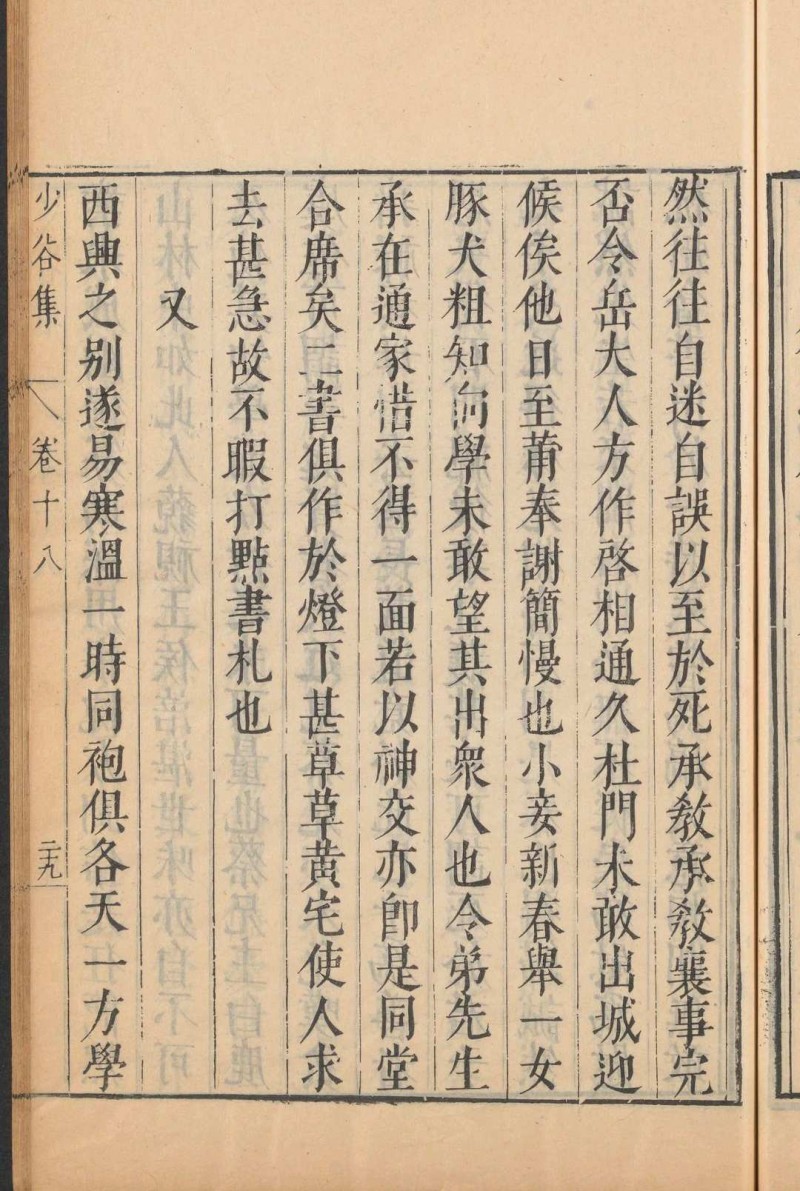 然往往自迷自誤以至於死承教承教襄事完
否令岳大人方作啓相通久杜門未敢出城迎
候俟他日至莆奉謝簡慢也小妾新春舉一女
豚犬粗知向學未敢望其出衆人也令弟先生
承在通家惜不得一面若以神交亦卽是同堂
合席矣二書俱作於燈下甚草草黃宅使人求
去甚急故不暇打點書札也
又
西興之别遂易寒溫一時同袍俱各天一方學
少谷集 卷十八 二十九